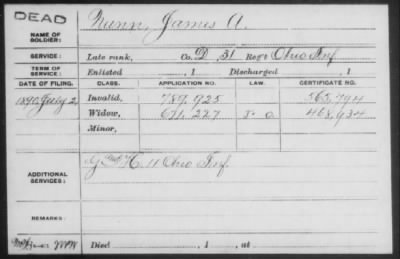 DEAD
NAME OF SOLDIER: Nunn, James A.
SERVICE: Late rank, Co. D, 31 Reg't Ohio Inf
TERM OF SERVICE: Enlisted , 1 Discharged , 1
DATE OF FILING. CLASS. APPLICATION NO. LAW. CERTIFICATE NO.
1890 July 2 Invalid, 789,925 565,794
Widow, 671,227 468,934
Minor,
ADDITIONAL SERVICES: H 11 Ohio Inf.
REMARKS:
Died , 1 , at